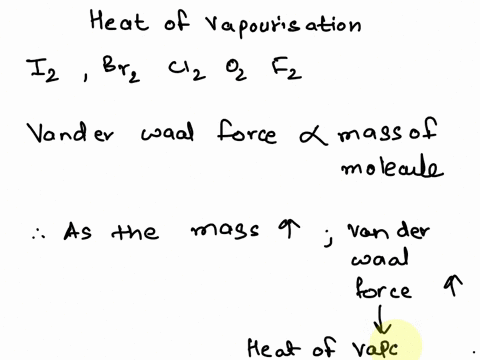 Heat of Vapourisation
I2 , Br2 Cl2 O2 F2
Vander waal force ∝ mass of
molecule
∴ As the mass ↑ ; Van der
waal
force ↑
↓
Heat of vapo